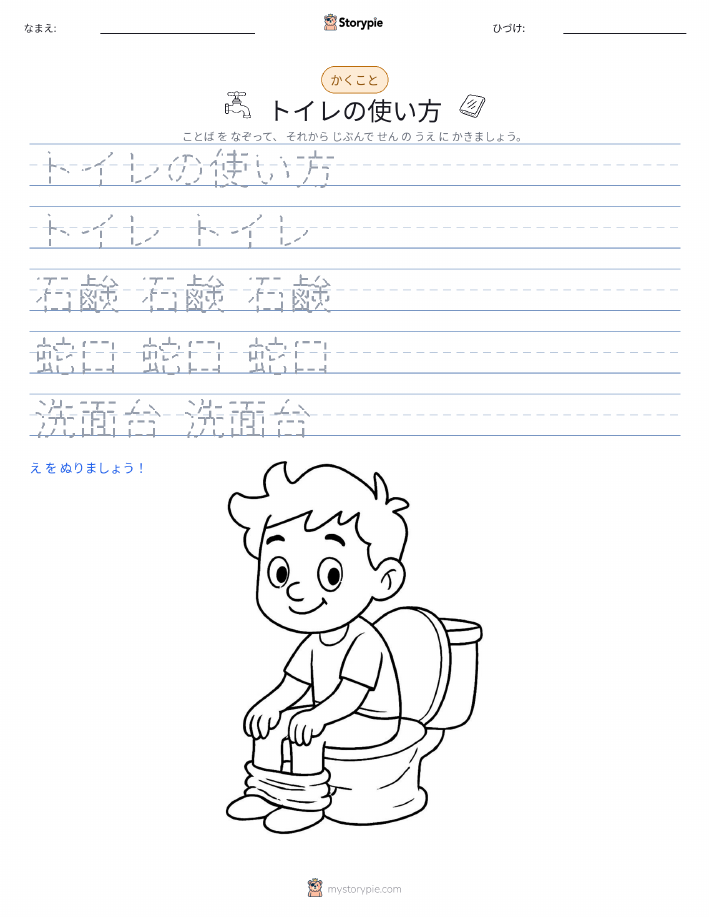 なまえ:
Storypie
ひづけ:
かくこと
トイレの使い方
ことば を なぞって、 それから じぶんで せん の うえ に かきましょう。
トイレの使い方
トイレ トイレ
石鹸 石鹸 石鹸
蛇口 蛇口 蛇口
洗面台 洗面台
え を ぬりましょう！
mystorypie.com